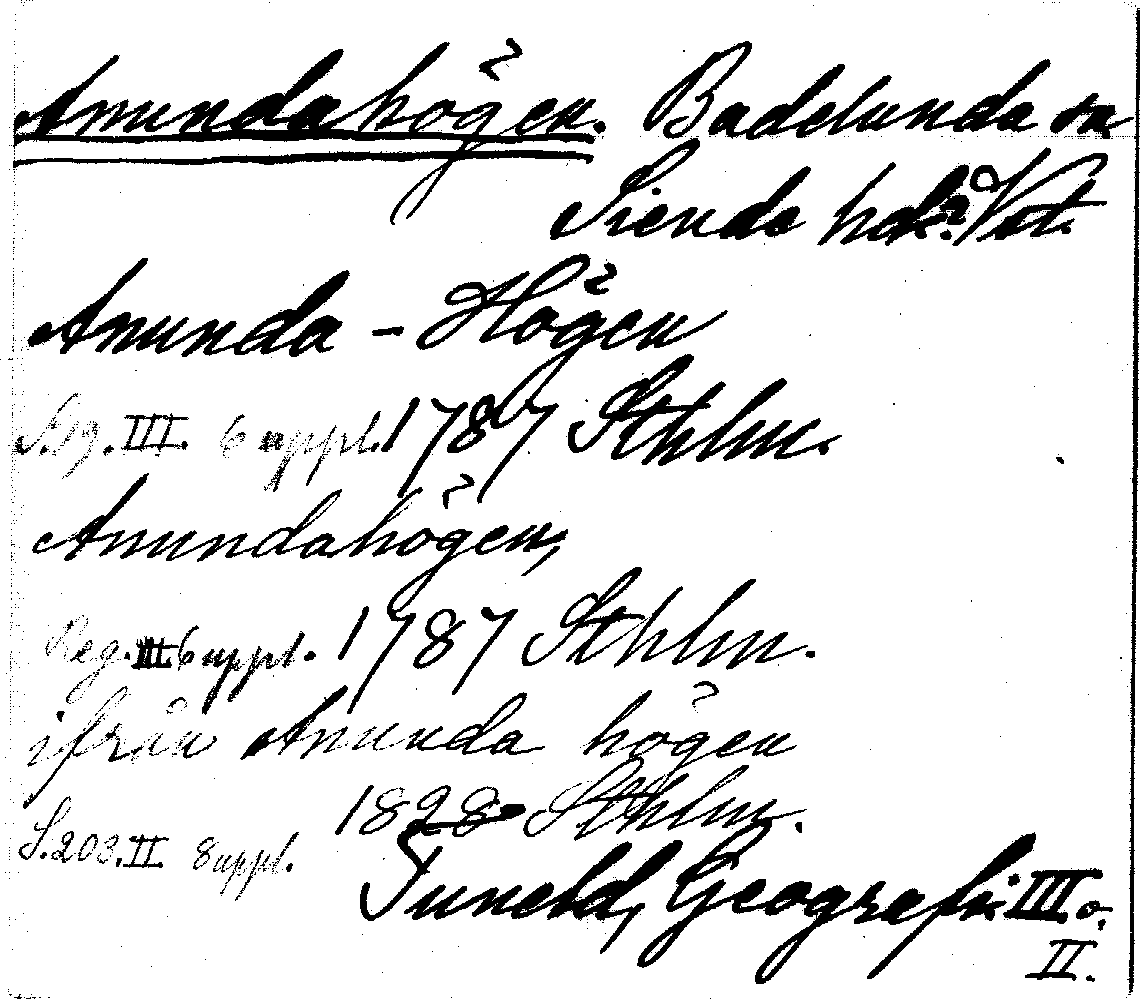 Anundahögen. Badelunda sn
Siende hd. Vstm.
Anunda-Högen
S. 19. III. 6 uppl. 1787 Sthlm.
Anundahögen,
Reg. III 6 uppl. 1787 Sthlm.
ifrån Anunda högen
1828 Sthlm.
S. 203. II 8 uppl.
Tuneld, Geografi III o.
II.